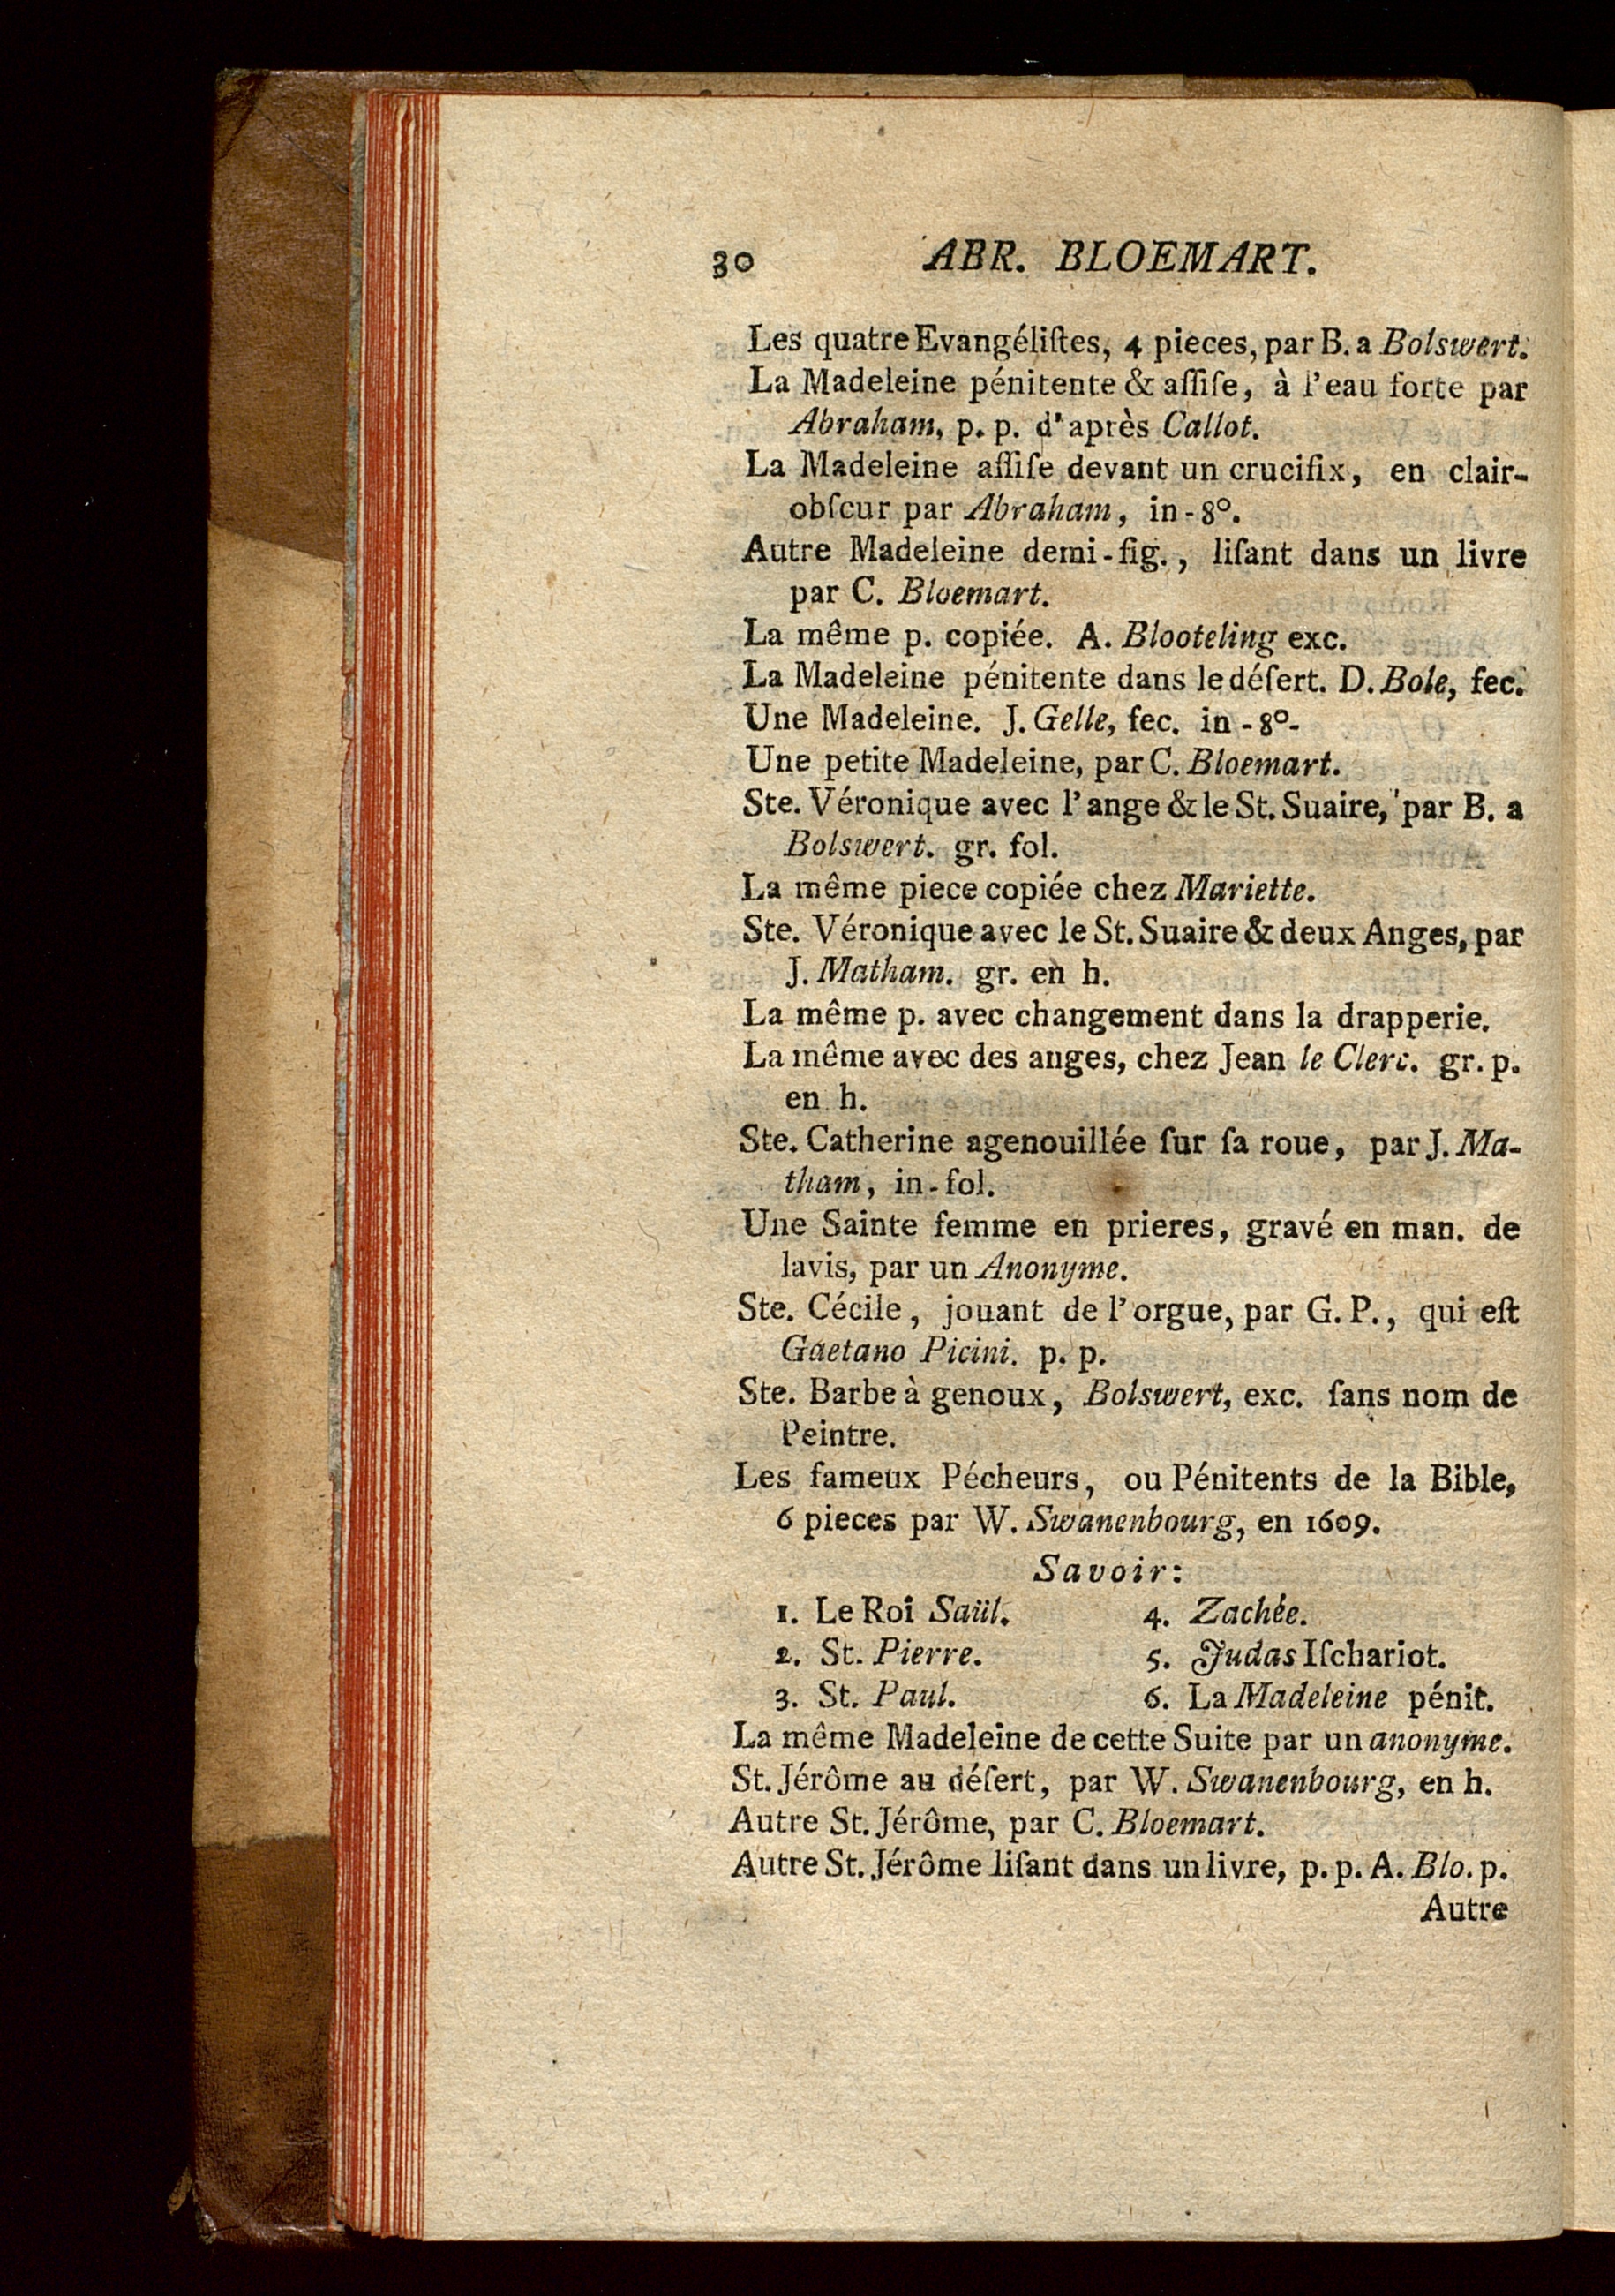 30 ABR. BLOEMART.
Les quatre Evangéliſtes, 4 pieces, par B. a Bolswert.
La Madeleine pénitente & aſſiſe, à l'eau forte par
Abraham, p. p. d'après Callot.
La Madeleine aſſiſe devant un crucifix, en clair-
obſcur par Abraham, in-8°.
Autre Madeleine demi-fig., liſant dans un livre
par C. Bloemart.
La même p. copiée. A. Blooteling exc.
La Madeleine pénitente dans le déſert. D. Bole, fec.
Une Madeleine. J. Gelle, fec. in-8°-
Une petite Madeleine, par C. Bloemart.
Ste. Véronique avec l'ange & le St. Suaire, par B. a
Bolswert. gr. fol.
La même piece copiée chez Mariette.
Ste. Véronique avec le St. Suaire & deux Anges, par
J. Matham. gr. en h.
La même p. avec changement dans la drapperie.
La même avec des anges, chez Jean le Clerc. gr. p.
en h.
Ste. Catherine agenouillée ſur ſa roue, par J. Ma-
tham, in-fol.
Une Sainte femme en prieres, gravé en man. de
lavis, par un Anonyme.
Ste. Cécile, jouant de l'orgue, par G. P., qui eſt
Gaetano Picini. p. p.
Ste. Barbe à genoux, Bolswert, exc. ſans nom de
Peintre.
Les fameux Pécheurs, ou Pénitents de la Bible,
6 pieces par W. Swanenbourg, en 1609.
Savoir:
1. Le Roi Saül. 4. Zachée.
2. St. Pierre. 5. Judas Iſchariot.
3. St. Paul. 6. La Madeleine pénit.
La même Madeleine de cette Suite par un anonyme.
St. Jérôme au déſert, par W. Swanenbourg, en h.
Autre St. Jérôme, par C. Bloemart.
Autre St. Jérôme liſant dans un livre, p. p. A. Blo. p.
Autre